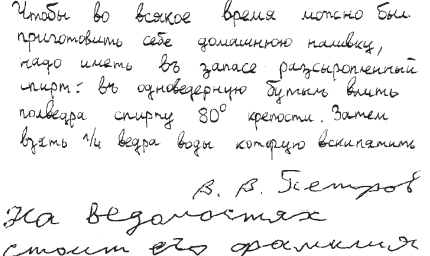 Чтобы во всякое время можно был
приготовить себе домашнюю наливку,
надо иметь въ запасе разсыропленный
спирт: въ одноведерную бутыль влить
полведра спирту 80° крепости. Затем
взять 1/4 ведра воды которую вскипятить
В. В. Петров
На ведомостях
стоит его фамилия